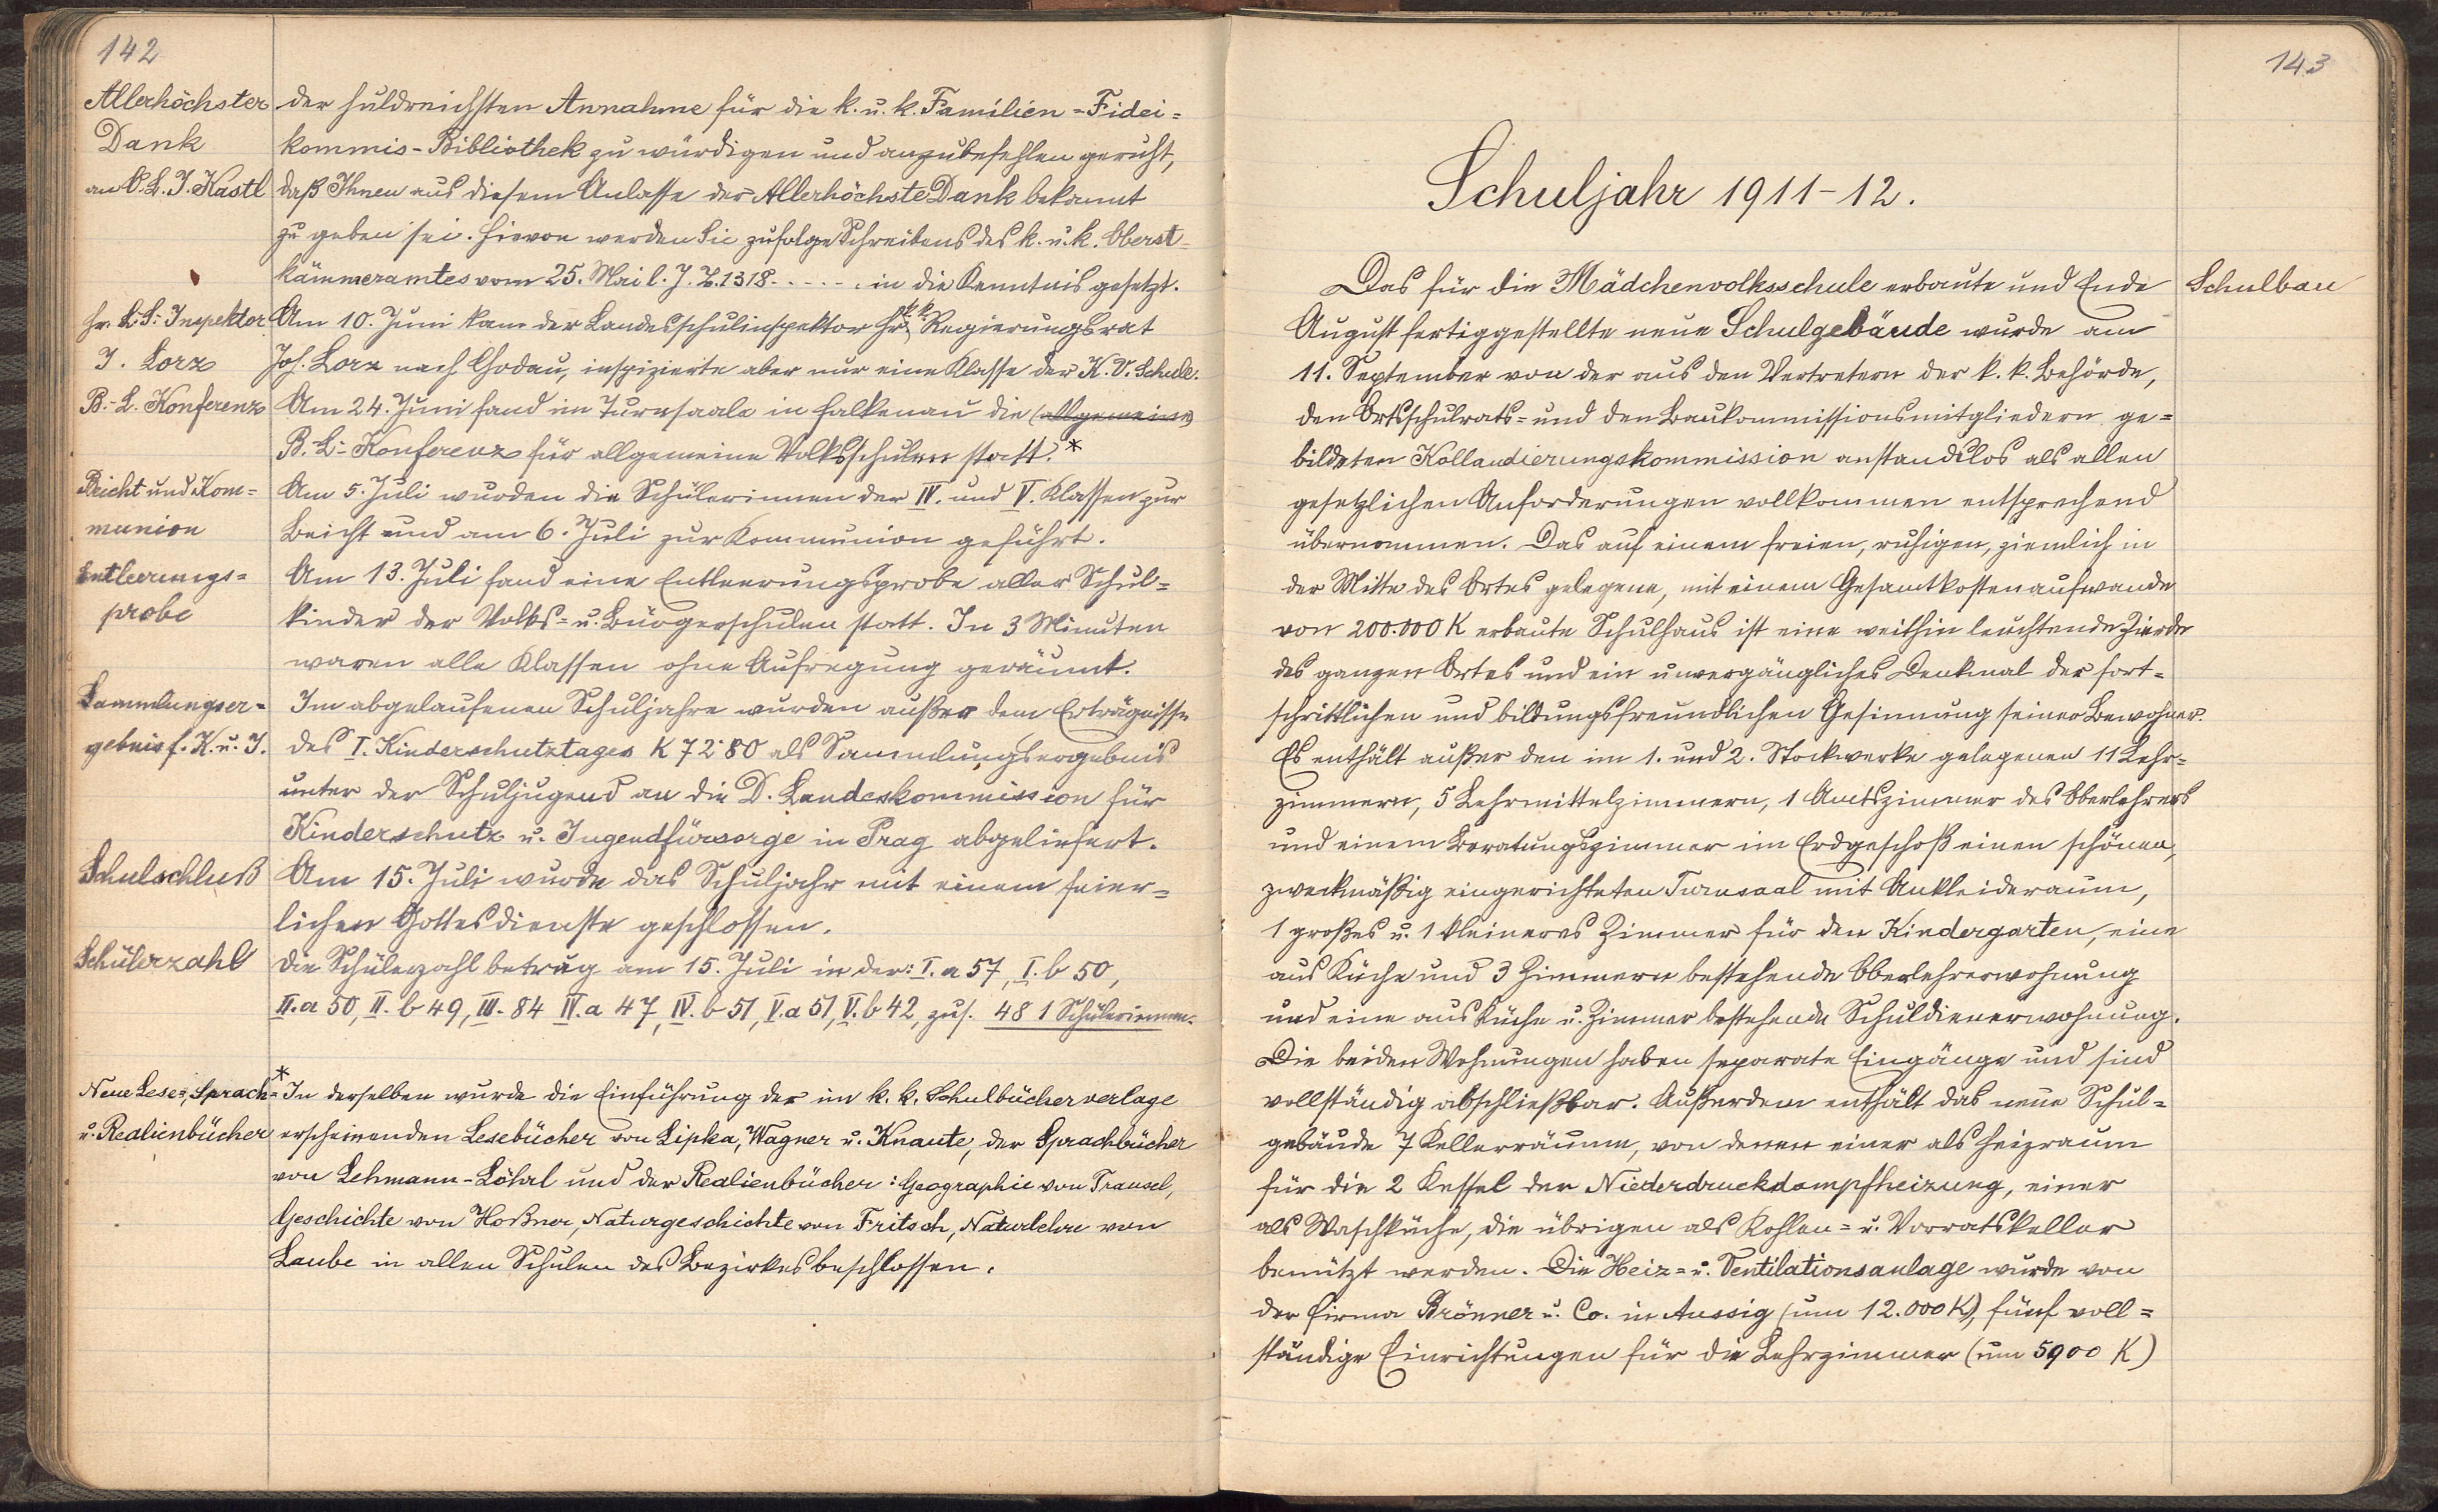 142
Allerhöchster
Dank
an O. L. J. Kastl
der huldreichsten Annahme für die k. u. k. Familien-Fidei=
kommis-Bibliothek zu würdigen und anzubefehlen geruht,
daß Ihnen aus diesem Anlasse der Allerhöchste Dank bekannt
zu geben sei. Hievon werden Sie zufolge Schreibens des k. u. k. Oberst-
kämmeramtes vom 25. Mai l. J. Z. 1318 . . . . . in die Kenntnis gesetzt.
Hr. L. S. Inspektor
J. Lorz
Am 10. Juni kam der Landesschulinspektor Hr. k. k. Regierungsrat
Jos. Lorz nach Chodau, inspizierte aber nur eine Klasse der K. V. Schule.
B.-L. Konferenz
Am 24. Juni fand im Turnsaale in Falkenau die (allgemeine)
B.-L.-Konferenz für allgemeine Volksschulen statt. *
Beicht und Kom=
munion
Am 5. Juli wurden die Schülerinnen der IV. und V. Klassen zur
Beicht und am 6. Juli zur Kommunion geführt.
Entleerungs=
probe
Am 13. Juli fand eine Entleerungsprobe aller Schul=
kinder der Volks= u. Bürgerschulen statt. In 3 Minuten
waren alle Klassen ohne Aufregung geräumt.
Sammlungser=
gebnis f. K. u. J.
Im abgelaufenen Schuljahre wurden außer dem Erträgnisse
des I. Kinderschutztages K 72·80 als Sammlungsergebnis
unter der Schuljugend an die D. Landeskommission für
Kinderschutz u. Jugendfürsorge in Prag abgeliefert.
Schulschluß
Am 15. Juli wurde das Schuljahr mit einem feier=
lichen Gottesdienste geschlossen.
Schülerzahl
Die Schülerzahl betrug am 15. Juli in der: I. a 57, I. b 50,
II. a 50, II. b 49, III. 84 IV. a 47, IV. b 51, V. a 51, V. b 42, zus. 481 Schülerinnen.
Neue Lese=, Sprach=
u. Realienbücher
* In derselben wurde die Einführung der im k. k. Schulbücherverlage
erscheinenden Lesebücher von Lipka, Wagner u. Knaute, der Sprachbücher
von Lehmann-Löhrl und der Realienbücher: Geographie von Transel,
Geschichte von Hoßner, Naturgeschichte von Fritsch, Naturlehre von
Laube in allen Schulen des Bezirkes beschlossen.
143
Schuljahr 1911-12.
Schulbau
Das für die Mädchenvolksschule erbaute und Ende
August fertiggestellte neue Schulgebäude wurde am
11. September von der aus den Vertretern der k. k. Behörde,
den Ortsschulrats= und den Baukommissionsmitgliedern ge=
bildeten Kollaudierungskommission anstandslos als allen
gesetzlichen Anforderungen vollkommen entsprechend
übernommen. Das auf einem freien, ruhigen, ziemlich in
der Mitte des Ortes gelegene, mit einem Gesamtkostenaufwande
von 200.000 K erbaute Schulhaus ist eine weithin leuchtende Zierde
des ganzen Ortes und ein unvergängliches Denkmal der fort=
schrittlichen und bildungsfreundlichen Gesinnung seiner Bewohner.
Es enthält außer den im 1. und 2. Stockwerke gelegenen 11 Lehr=
zimmern, 5 Lehrmittelzimmern, 1 Amtszimmer des Oberlehrers
und einem Beratungszimmer im Erdgeschoß einen schönen,
zweckmäßig eingerichteten Turnsaal mit Ankleideraum,
1 großes u. 1 kleineres Zimmer für den Kindergarten, eine
aus Küche und 3 Zimmern bestehende Oberlehrerwohnung
und eine aus Küche u. Zimmer bestehende Schuldienerwohnung.
Die beiden Wohnungen haben separate Eingänge und sind
vollständig abschließbar. Außerdem enthält das neue Schul=
gebäude 7 Kellerräume, von denen einer als Heizraum
für die 2 Kessel der Niederdruckdampfheizung, einer
als Waschküche, die übrigen als Kohlen= u. Vorratskeller
benützt werden. Die Heiz= u. Ventilationsanlage wurde von
der Firma Brönner u. Co. in Aussig (um 12.000 K), fünf voll=
ständige Einrichtungen für die Lehrzimmer (um 5900 K)